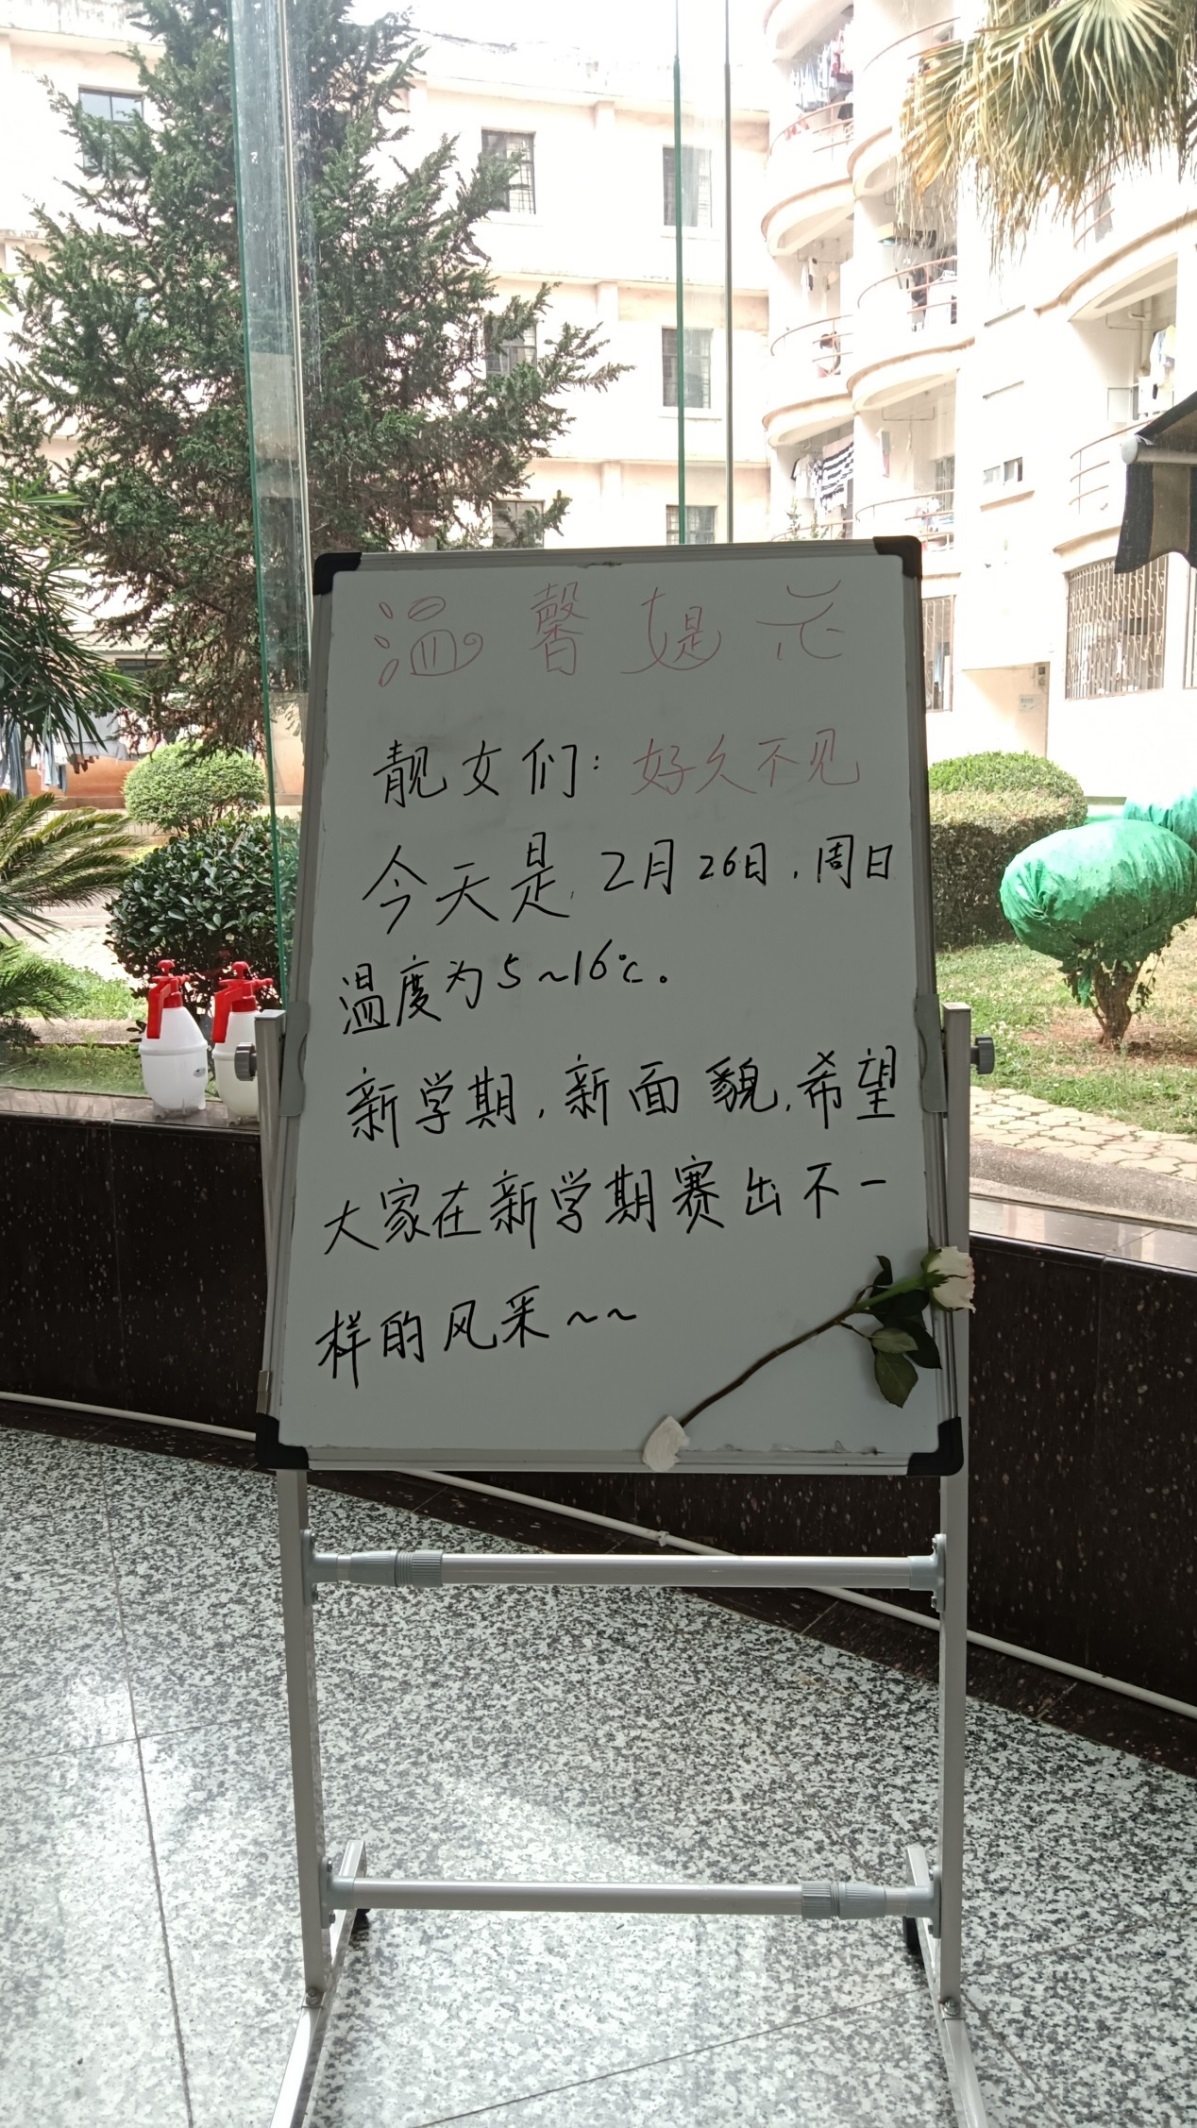 温馨提示
靓女们：好久不见
今天是，2月26日，周日
温度为5~16℃。
新学期，新面貌，希望
大家在新学期赛出不一
样的风采~~